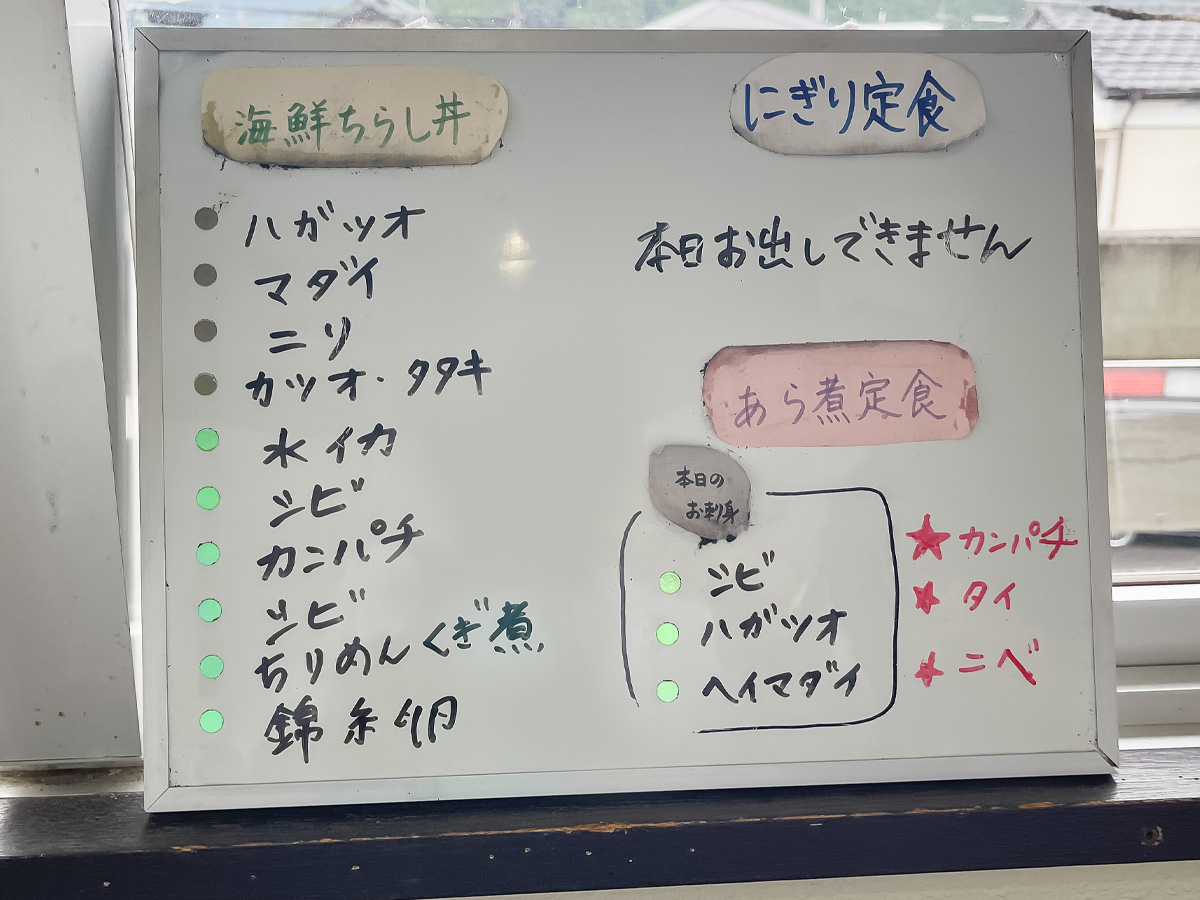 海鮮ちらし丼
ハガツオ
マダイ
ニリ
カツオ・タタキ
水イカ
シビ
カンパチ
シビ
ちりめんくぎ煮
錦糸卵
にぎり定食
本日お出しできません
あら煮定食
本日の
お刺身
シビ
ハガツオ
ヘイマダイ
カンパチ
タイ
ニベ